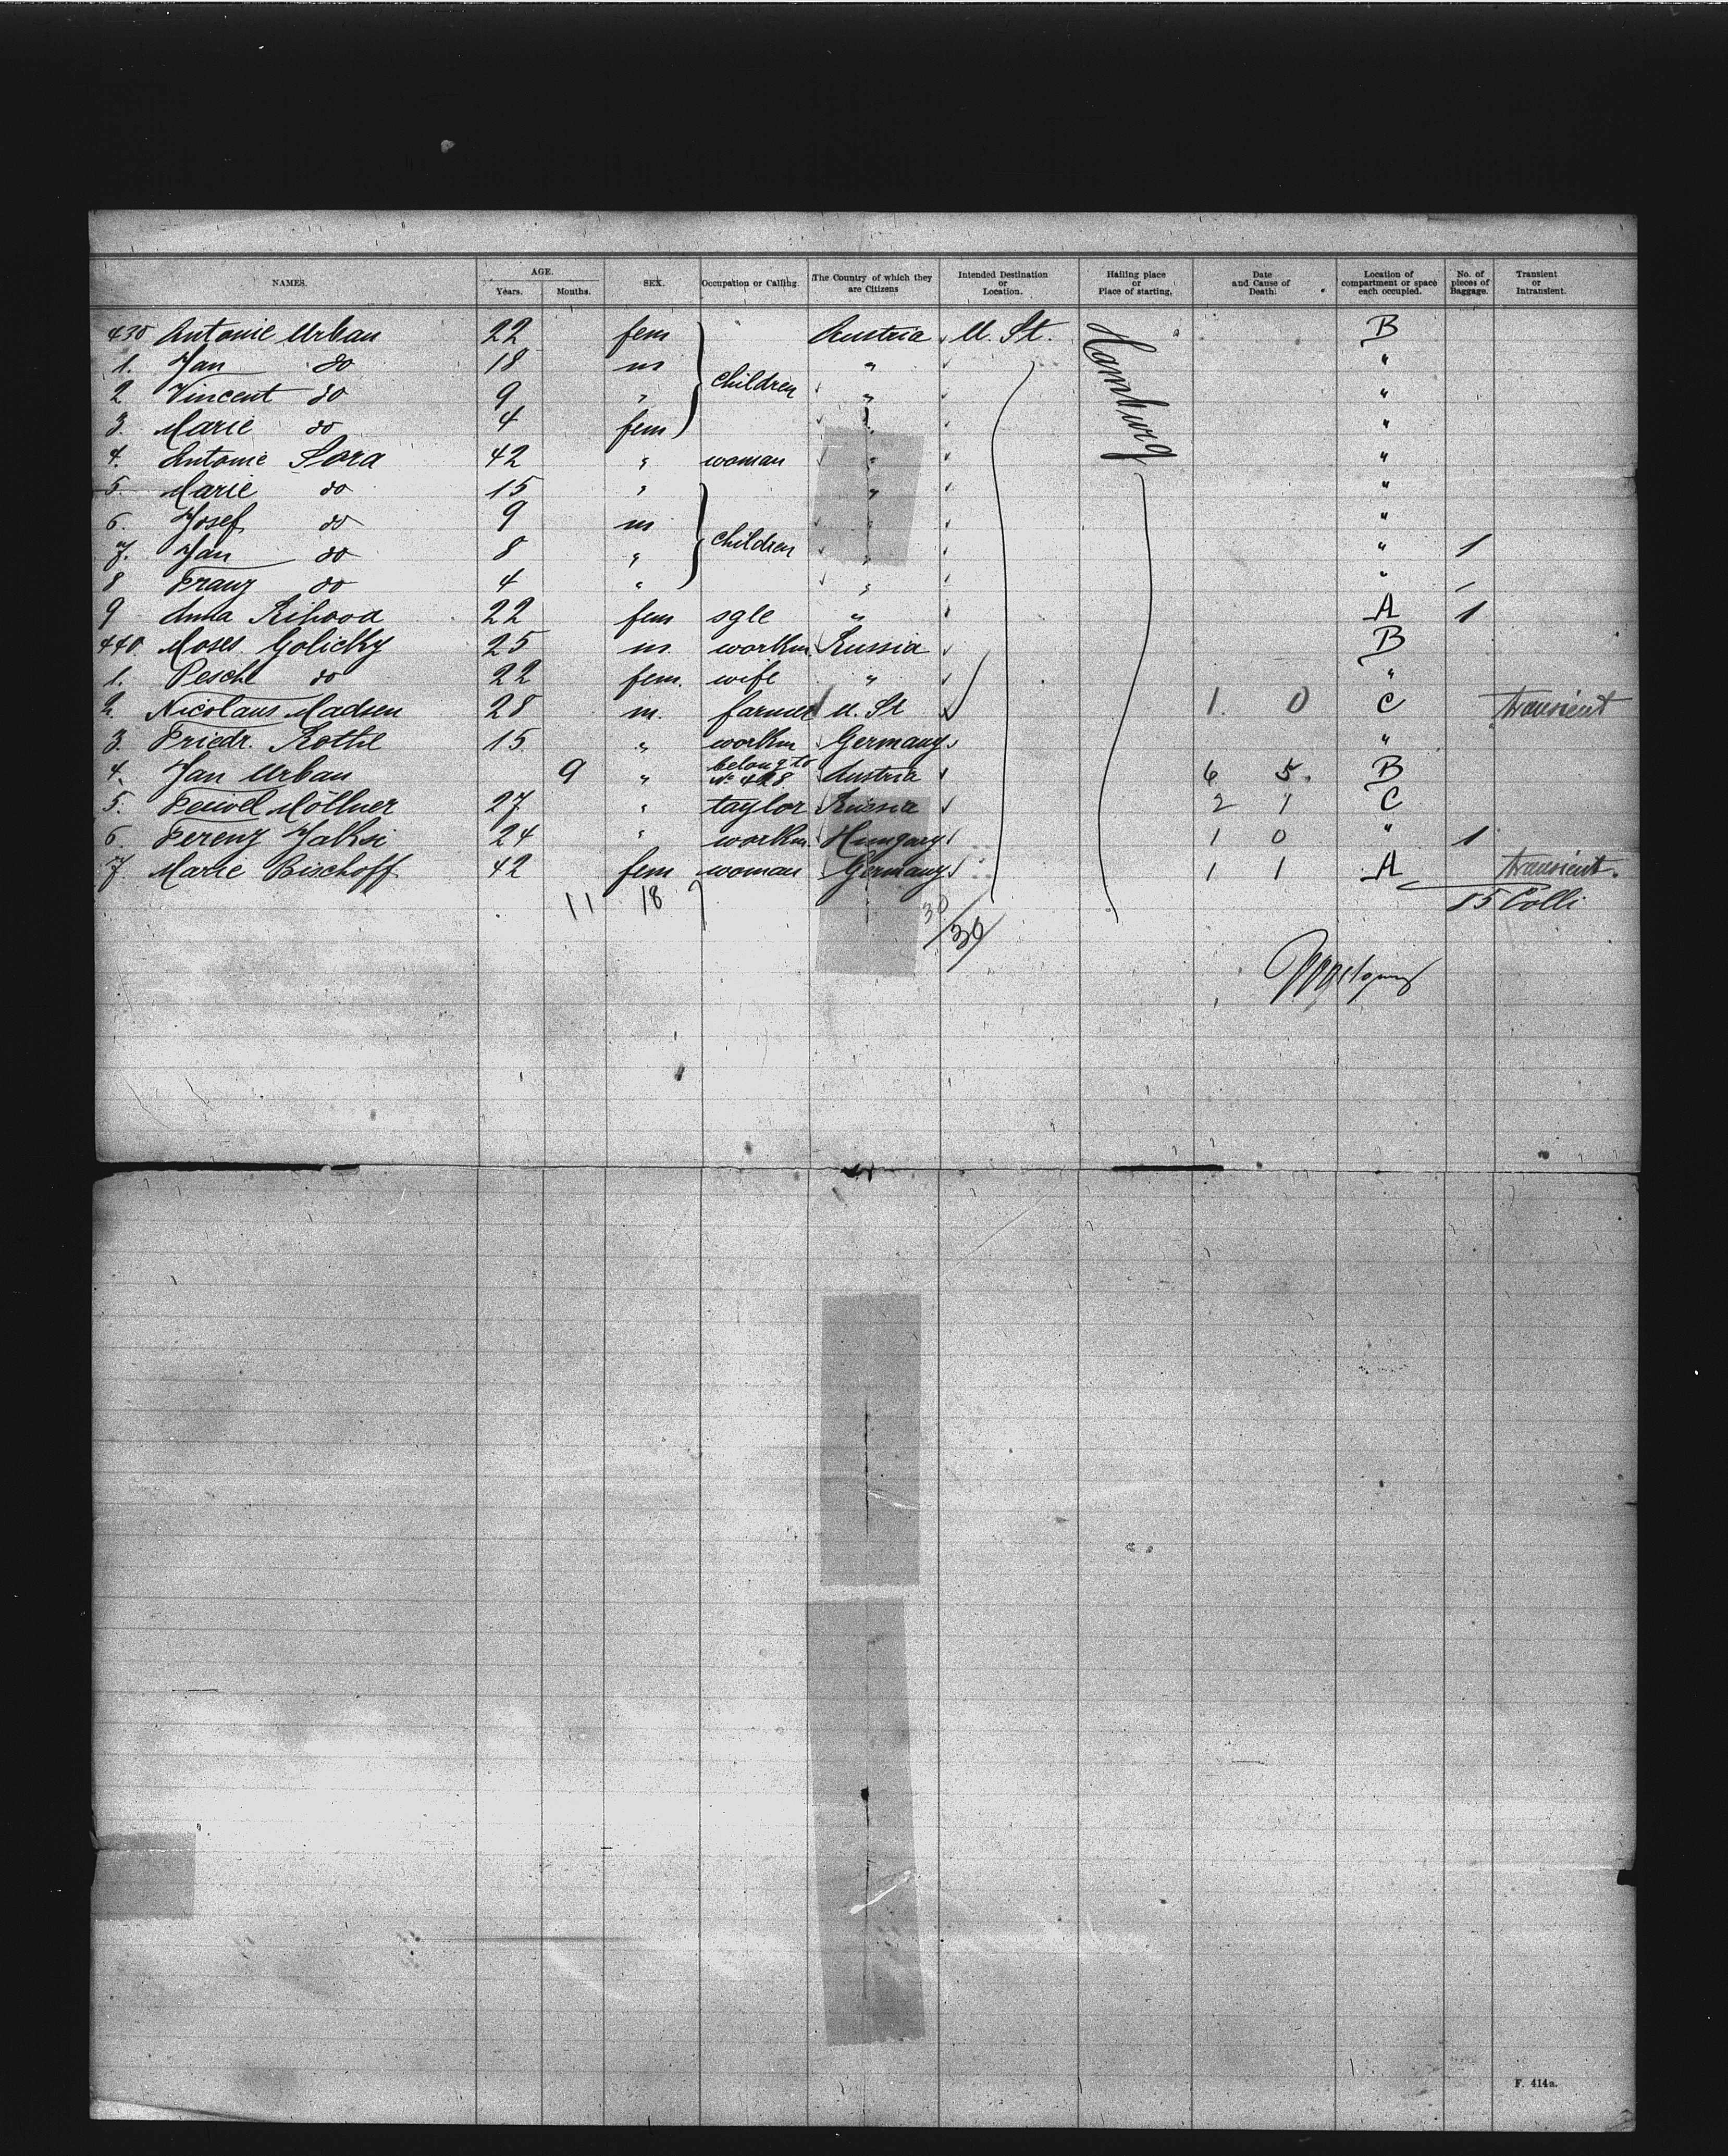 NAMES. AGE. Years. Months. SEX. Occupation or Calling. The Country of which they are Citizens Intended Destination or Location. Hailing place or Place of starting. Date and Cause of Death. Location of compartment or space each occupied. No. of pieces of Baggage. Transient or Intransient.
430 Antonie Urban 22 fem Austria U. St. Hamburg B
1. Jan do 18 m " "
2 Vincent do 9 " children " "
3. Marie do 4 fem " "
4. Antonie Sora 42 " woman " "
5. Marie do 15 " " "
6. Josef do 9 m " "
7. Jan do 8 " children " " 1
8 Franz do 4 " " "
9 Anna 22 fem sgle " A 1
440 Moses Golichy 25 m. workm. Russia B
1. Pesche do 22 fem. wife " "
2. Nicolaus Madsen 28 m. farmer U. St 1. 0 C transient
3. Friedr. Kothe 15 " workm Germany "
4. Jan Urban 9 " belong to No 428 Austria 6 5. B
5. Feiwel Möllner 27 " taylor Russia 2 1 C
6. Ferenz Jaksi 24 " workm Hungary 1 0 " 1
7. Marie Bischoff 42 fem woman Germany 1 1 A transient.
11 18 30 85 Colli
30
F. 414a.